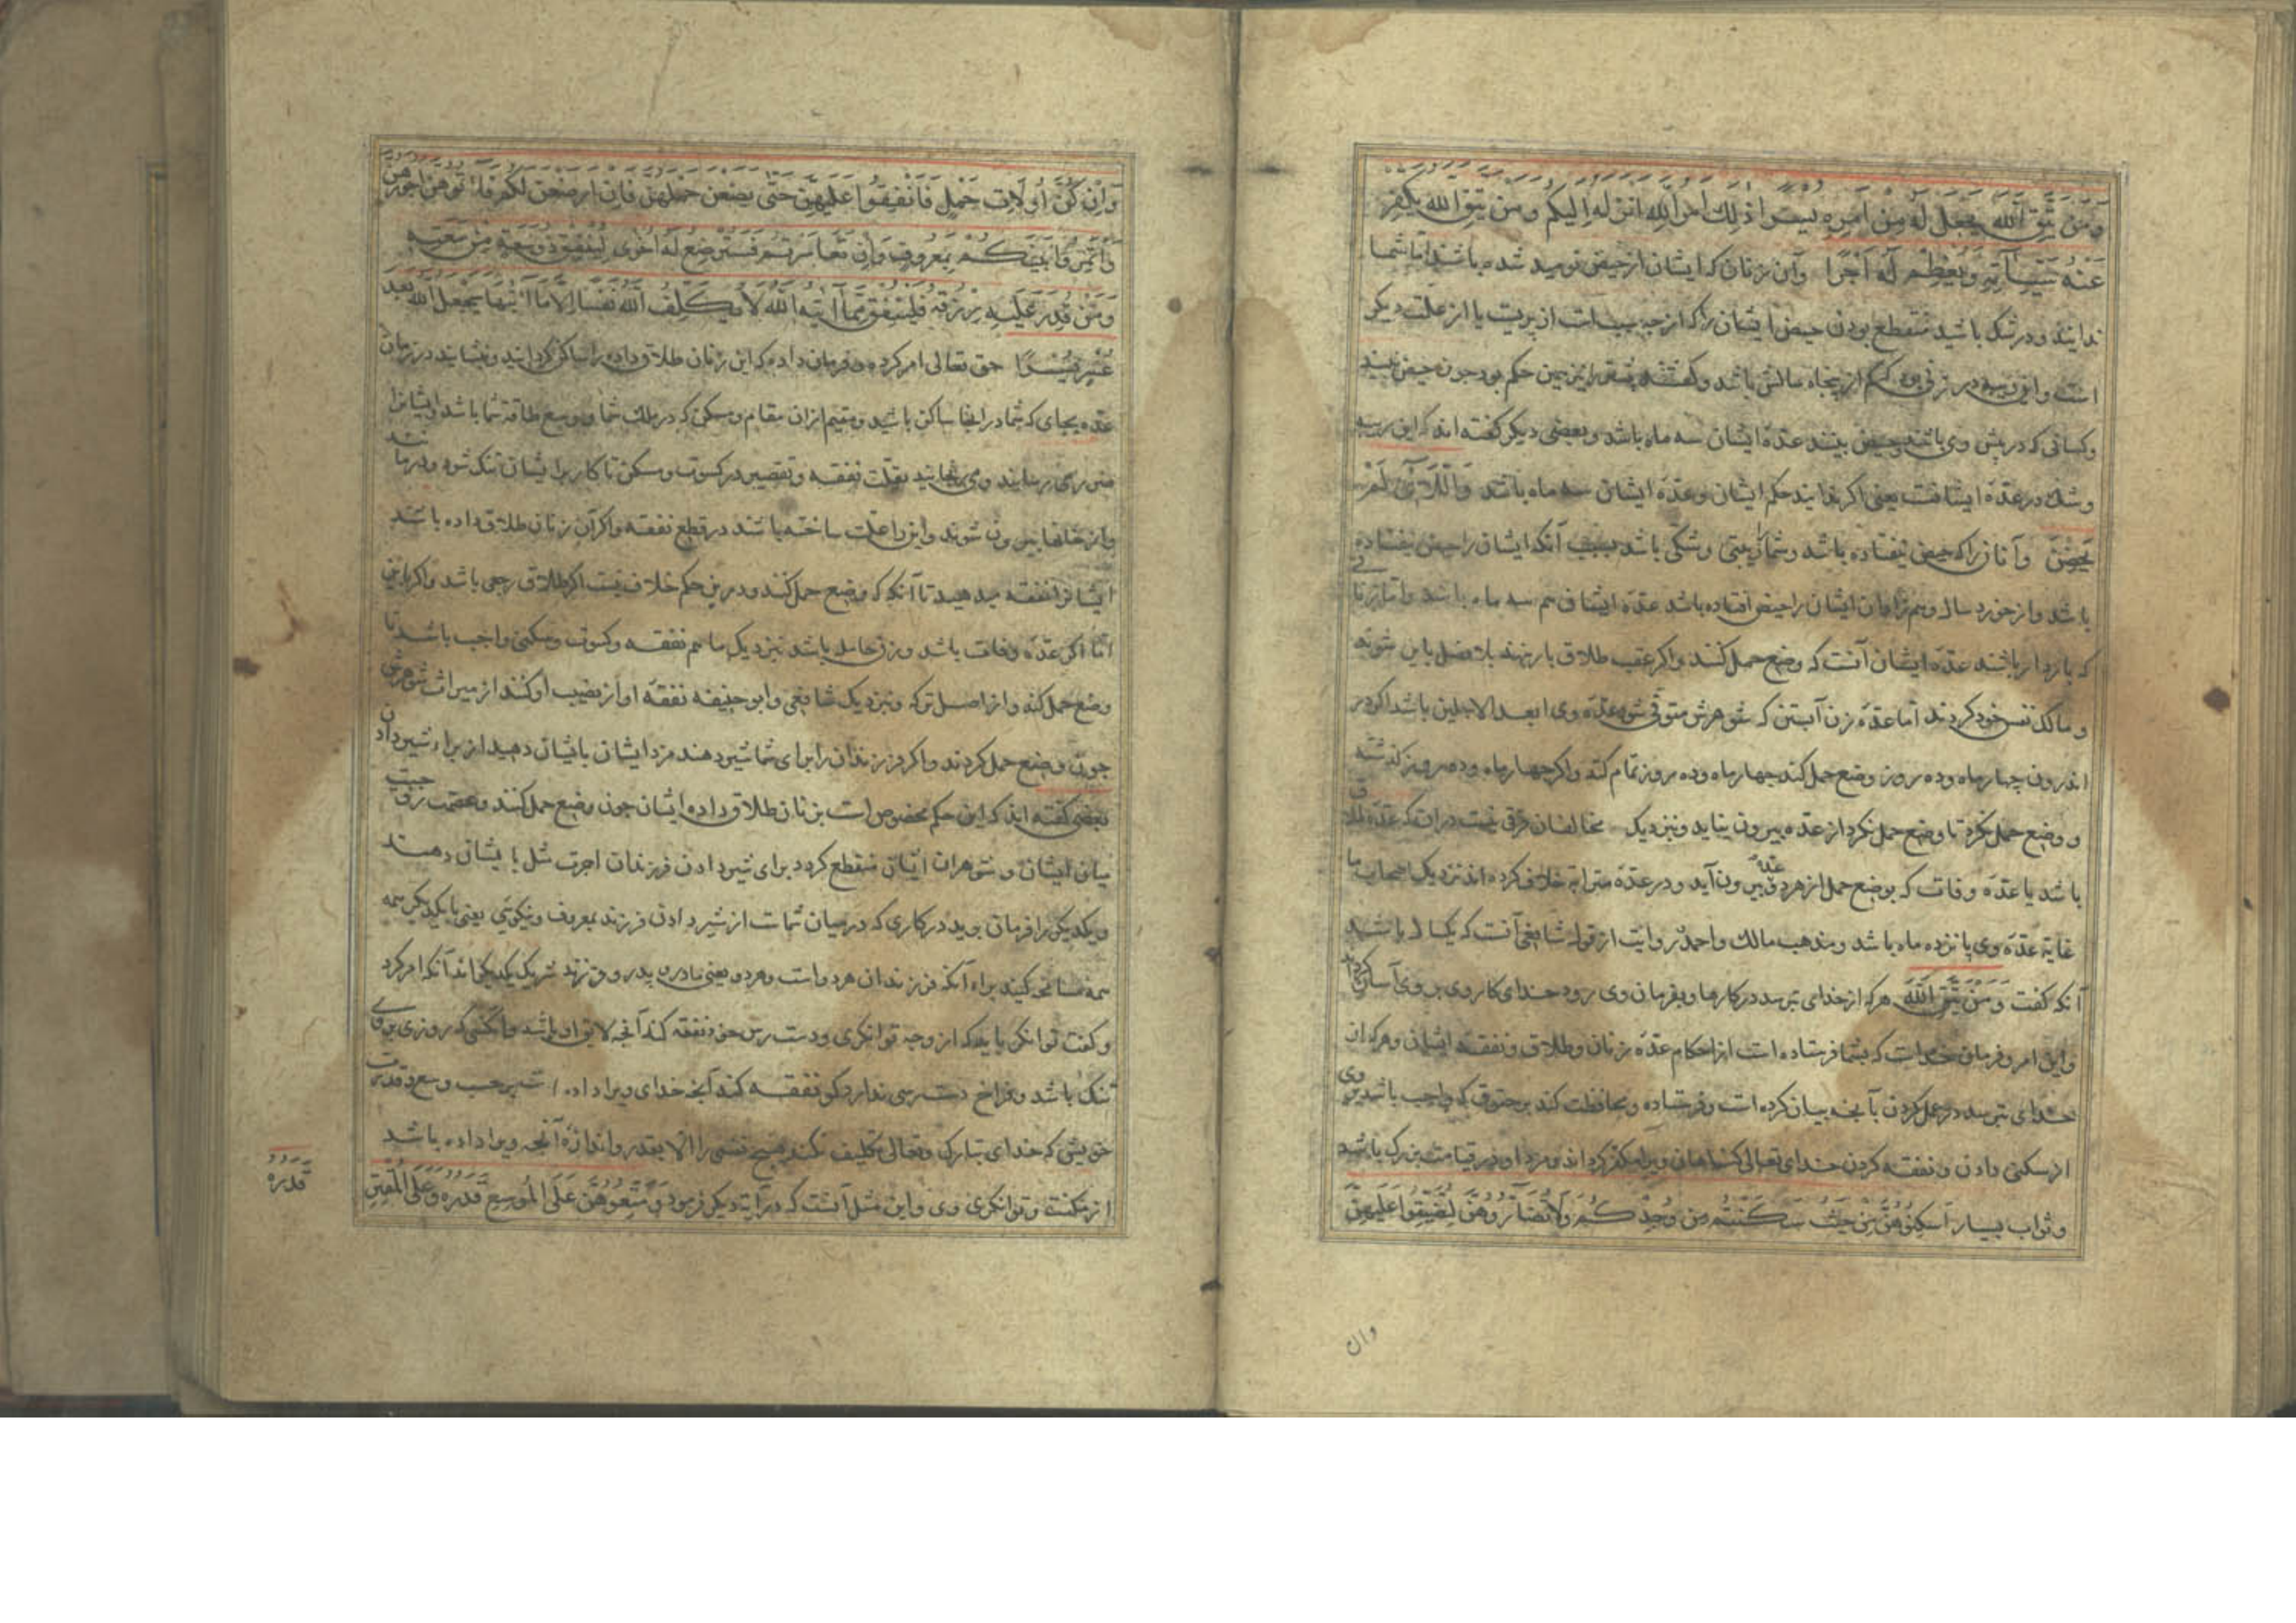 وَمَنْ يَتَّقِ اللَّهَ يَجْعَلْ لَهُ مِنْ أَمْرِهِ يُسْرًا ذَلِكَ أَمْرُ اللَّهِ أَنْزَلَهُ إِلَيْكُمْ وَمَنْ يَتَّقِ اللَّهَ يُكَفِّرْ
عَنْهُ سَيِّئَاتِهِ وَيُعْظِمْ لَهُ أَجْرًا وآن زنان که ایشان از حیض نومید شده باشند اما شما
ندانید و در شک باشید منقطع بودن حیض ایشان را که از جهت از پریت یا از علت دیکر
است و این در زنی بود که کم از پنجاه سالش باشد و کفتند نیز همین حکم بود جون حیض نبیند
وکسانی که در پیش وی باشند وحیض بینند عدّه ایشان سه ماه باشد و بعضی دیکر کفته اند که این ریبه
وشک در عدّه ایشانست یعنی اکر ندانید حکم ایشان و عدّه ایشان سه ماه باشد وَاللَّائِي لَمْ
يَحِضْنَ وآنان را که حیض نیفتاده باشد وشما و شکی باشد بسبب آنکه ایشان را حیض نیفتاده
باشد و از خورد سال و هم زادان ایشان را حیض افتاده باشد عدّه ایشان هم سه ماه باشد و اما زنانی
که باردار باشند عدّه ایشان آنست که وضع حمل کنند واکر عقب طلاق بار نهند بلا فصل باین شوند
و مالک نفس خود کردند اما عدّه زن آبستن که شوهرش متوفی شود عدّه وی ابعد الاجلین باشد اکر در
اندرون چهار ماه وده روز وضع حمل کند جهار ماه و ده روز تمام کند واکر جهار ماه وده روز کذشته
و وضع حمل نکرد تا وضع حمل نکرد از عدّه بیرون نیاید ونزدیک مخالفان فرقی نیست در آن که عدّه طلاق
باشد یا عدّه وفات که بوضع حمل از هر دو عدّه بیرون آید و در عدّه مسترابه خلاف کرده اند نزدیک اصحاب ما
غایة عدّه وی پانزده ماه باشد و مذهب مالک واحمد روایت از قول شافعی آنست که یکسال باشد
آنکه کفت وَمَنْ يَتَّقِ اللَّهَ هر که از خدای بترسد در کارها وبفرمان وی رود خدای کار وی بر وی آسان کرداند
واین امر و فرمان خداست که بشما فرستاده است از احکام عدّه زنان وطلاق ونفقه ایشان و هر که از
خدای بترسد در عمل کردن بآنجه بیان کرده است وفرستاده و محافظت کند بر حقوق که واجب باشد بر وی
از سکنی دادن ونفقه کردن خدای تعالی کناهان ویرا مکفر کرداند ومزد او در قیامت بزرک باشد
وثواب بسیار أَسْكِنُوهُنَّ مِنْ حَيْثُ سَكَنْتُمْ مِنْ وُجْدِكُمْ وَلَا تُضَارُّوهُنَّ لِتُضَيِّقُوا عَلَيْهِنَّ
وان
وَإِنْ كُنَّ أُولَاتِ حَمْلٍ فَأَنْفِقُوا عَلَيْهِنَّ حَتَّى يَضَعْنَ حَمْلَهُنَّ فَإِنْ أَرْضَعْنَ لَكُمْ فَآتُوهُنَّ أُجُورَهُنَّ
وَأْتَمِرُوا بَيْنَكُمْ بِمَعْرُوفٍ وَإِنْ تَعَاسَرْتُمْ فَسَتُرْضِعُ لَهُ أُخْرَى لِيُنْفِقْ ذُو سَعَةٍ مِنْ سَعَتِهِ
وَمَنْ قُدِرَ عَلَيْهِ رِزْقُهُ فَلْيُنْفِقْ مِمَّا آتَاهُ اللَّهُ لَا يُكَلِّفُ اللَّهُ نَفْسًا إِلَّا مَا آتَاهَا سَيَجْعَلُ اللَّهُ بَعْدَ
عُسْرٍ يُسْرًا حق تعالی امر کرده و فرمان داده که این زنان طلاق داده را ساکن کردانید وبنشانید در زمان
عدّه بجای که شما در انجا ساکن باشید و مقیم از ان مقام و مسکن که در ملک شما و وسع طاقه شما باشد وایشانرا
ضرری نرسانید و مرنجانید بقلّت نفقه وتقصیر در کسوت ومسکن تا کار بر ایشان تنک شود ودرمانند
واز خانها بیرون شوند واین را علت ساخته باشند در قطع نفقه واکر آن زنان طلاق داده باشند
ایشانرا نفقه میدهید تا آنکه که وضع حمل کنند ودرین حکم خلاف نیست اکر طلاق رجعی باشد واکر باین
اما اکر عدّه وفات باشد وزن حامله باشد نزدیک ما هم نفقه وکسوت وسکنی واجب باشد تا
وضع حمل کند واز اصل ترکه ونزدیک شافعی وابو حنیفه نفقه او از نصیب او کنند از میراث شوهرش
جون وضع حمل کردند واکر فرزندان را برای شما شیر دهند مزد ایشان بایشان دهید از برای شیر دادن
بعضی کفته اند که این حکم مخصوص است بزنان طلاق داده ایشان جون وضع حمل کنند وعصمت زوجیت
میان ایشان و شوهران ایشان منقطع کردد برای شیر دادن فرزندان اجرت مثل بایشان دهند
ویکدیکر را فرمان برید در کاری که در میان شماست از شیر دادن فرزند بمعروف ونیکویی یعنی با یکدیکر همه
همه مسامحه کنید براء آنکه فرزندان هر دو است وهر دو یعنی مادر و پدر در فرزند شریک یکدیکراند آنکه امر کرد
وکفت توانکر باید که از وجه توانکری ودست رس خود نفقه کند آنجه لایق او باشد وانکس که روزی بر وی
تنک باشد وفراخ دست رسی ندارد کو نفقه کند آنجه خدای ویرا داده است بر حسب وسع وقدرت
خویش که خدای تبارک وتعالی تکلیف نکند هیچ نفسی را الا بقدر واندازه آنجه ویرا داده باشد
از مکنت وتوانکری وی واین مثل آنست که در آیه دیکر فرمود وَمَتِّعُوهُنَّ عَلَى الْمُوسِعِ قَدَرُهُ وَعَلَى الْمُقْتِرِ
قَدَرُهُ